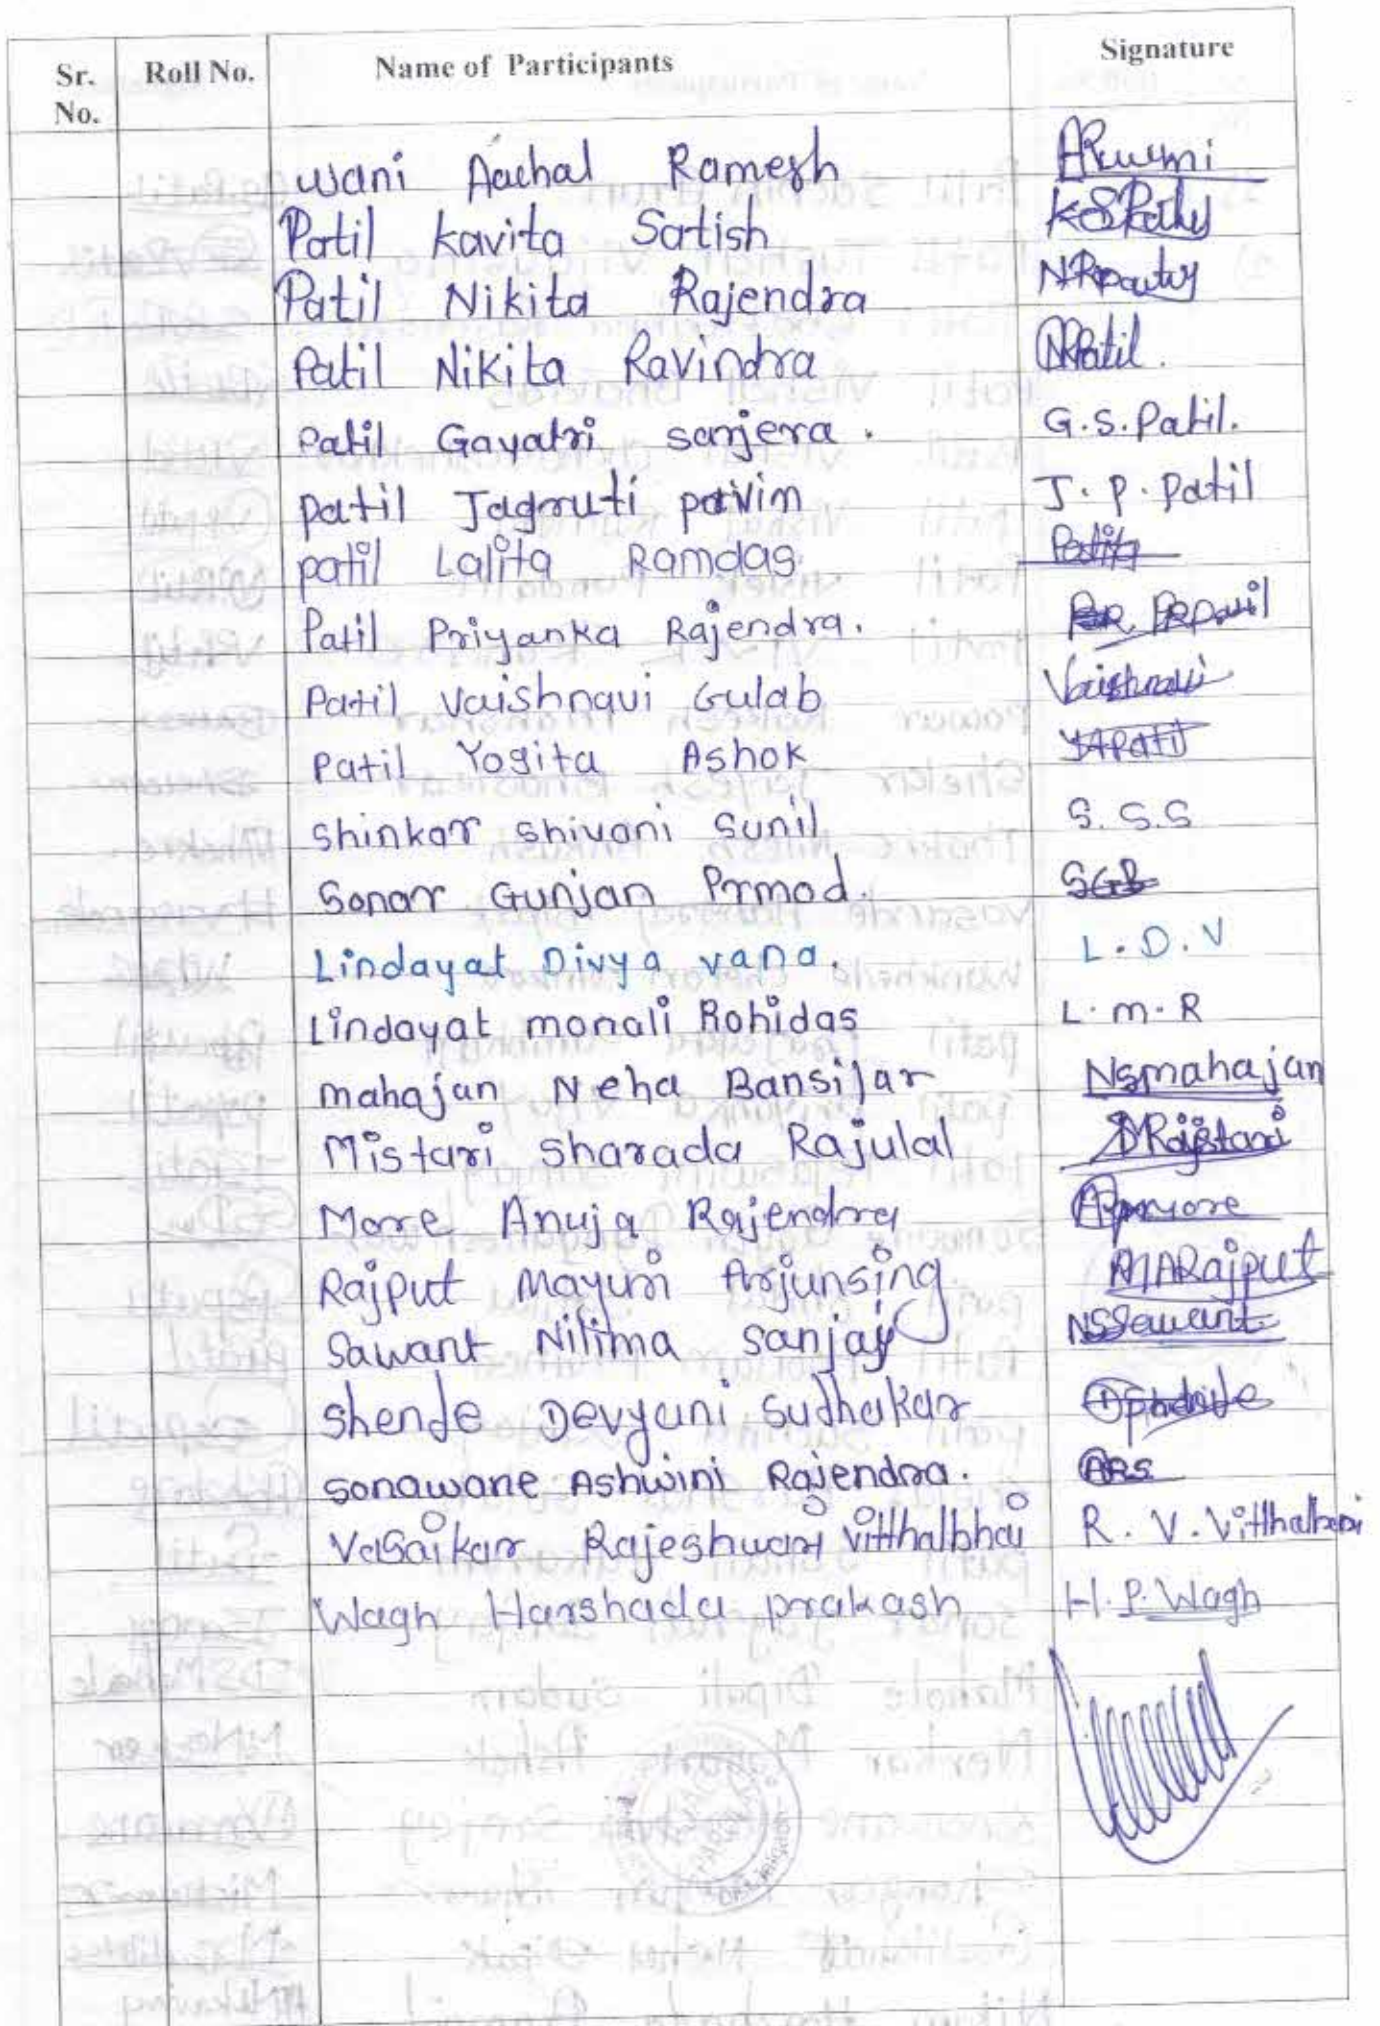 Sr. No. Roll No. Name of Participants Signature
Wani Aachal Ramesh
Patil Kavita Satish KSPatil
Patil Nikita Rajendra
Patil Nikita Ravindra NRPatil.
Patil Gayatri sanjera. G.S.Patil.
patil Jagruti pravin J.P.Patil
patil Lalita Ramdas. Patil
Patil Priyanka Rajendra. PRPatil
Patil Vaishnavi Gulab Vaishnavi
Patil Yogita Ashok YAPatil
Shinkar Shivani Sunil S.S.S
Sonar Gunjan Prmod.
Lindayat Divya vana. L.D.V
Lindayat monali Rohidas L.m.R
mahajan Neha Bansilar Nsmahajan
Mistari sharada Rajulal
More Anuja Rajendra
Rajput Mayuri Arjunsing MARajput
Sawant Nilima sanjay NSSawant
Shende Devyani Sudhakar
Sonawane Ashwini Rajendra. ARS
Vasaikar Rajeshwari Vitthalbhai R. V. Vitthalbhai
Wagh Harshada prakash H.P.Wagh